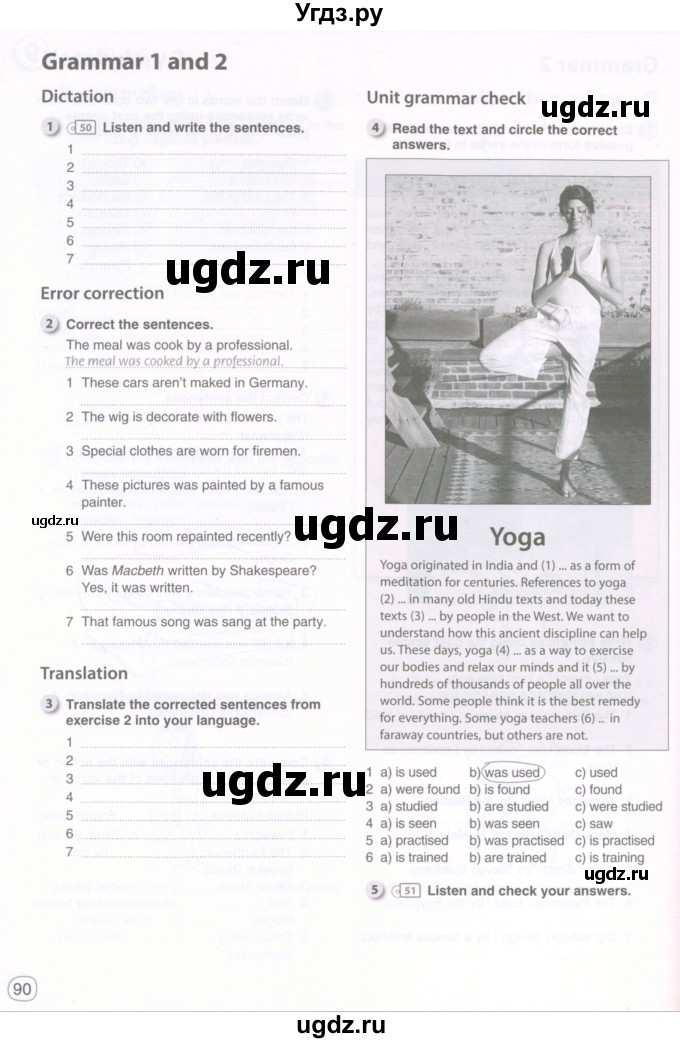 Угдз.ру
Grammar 1 and 2
Dictation
1 50 Listen and write the sentences.
1
2
3
4
5
6
7
ugdz.ru
Error correction
2 Correct the sentences.
The meal was cook by a professional.
The meal was cooked by a professional.
1 These cars aren't maked in Germany.
2 The wig is decorate with flowers.
3 Special clothes are worn for firemen.
4 These pictures was painted by a famous
painter.
ugdz.ru
5 Were this room repainted recently?
6 Was Macbeth written by Shakespeare?
Yes, it was written.
7 That famous song was sang at the party.
Translation
3 Translate the corrected sentences from
exercise 2 into your language.
1
2
3
4
5
6
7
Unit grammar check
ugdz.ru
4 Read the text and circle the correct
answers.
ugdz.ru
Yoga
Yoga originated in India and (1) ... as a form of
meditation for centuries. References to yoga
(2) ... in many old Hindu texts and today these
texts (3) ... by people in the West. We want to
understand how this ancient discipline can help
us. These days, yoga (4) ... as a way to exercise
our bodies and relax our minds and it (5) ... by
hundreds of thousands of people all over the
world. Some people think it is the best remedy
for everything. Some yoga teachers (6) .. in
faraway countries, but others are not.
ugdz.ru
1 a) is used b) was used c) used
2 a) were found b) is found c) found
3 a) studied b) are studied c) were studied
4 a) is seen b) was seen c) saw
5 a) practised b) was practised c) is practised
6 a) is trained b) are trained c) is training
ugdz.ru
5 51 Listen and check your answers.
90
ugdz.ru